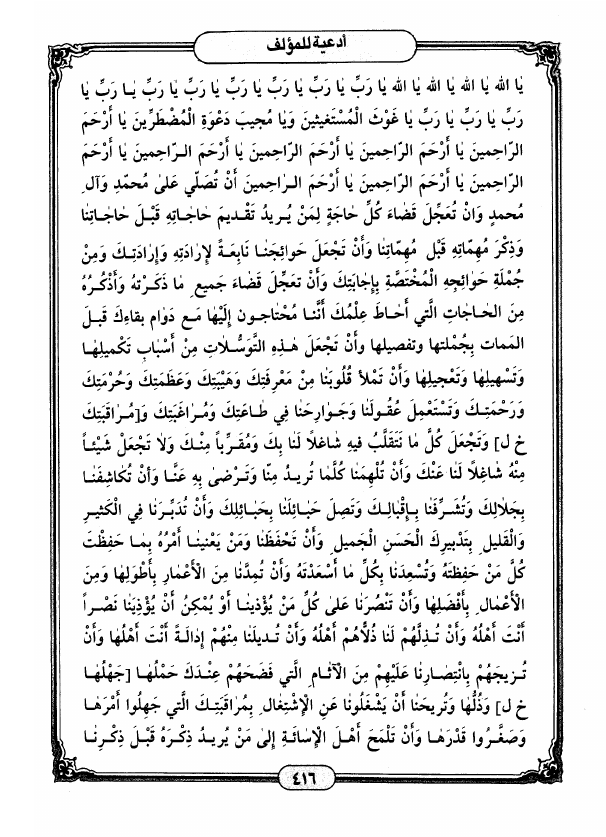 أدعية للمؤلف
يٰا الله يٰا الله يٰا الله يٰا الله يٰا رَبِّ يٰا رَبِّ يٰا رَبِّ يٰا رَبِّ يٰا رَبِّ يٰا رَبِّ يٰا رَبِّ يٰا
رَبِّ يٰا رَبِّ يٰا رَبِّ يٰا غَوْثَ الْمُسْتَغيثينَ وَيٰا مُجيبَ دَعْوَةِ الْمُضْطَرِّينَ يٰا أَرْحَمَ
الرّاحِمينَ يٰا أَرْحَمَ الرّاحِمينَ يٰا أَرْحَمَ الرّاحِمينَ يٰا أَرْحَمَ الـرّاحِمينَ يٰا أَرْحَمَ
الرّاحِمينَ يٰا أَرْحَمَ الرّاحِمينَ يٰا أَرْحَمَ الـراحِمينَ أَنْ تُصَلّي عَلىٰ مُحمّدٍ وَآلِ
مُحمدٍ وَانْ تُعَجِّلَ قَضٰاءَ كُلِّ حٰاجَةٍ لِمَنْ يُـريدُ تَقْديمَ حٰاجٰاتِهِ قَبْلَ حٰاجٰاتِنٰا
وَذِكْرَ مُهِمّاتِهِ قَبْلَ مُهِمّاتِنٰا وَأَنْ تَجْعَلَ حَوائِجَنٰـا تٰابِعَـةً لِإرٰادَتِهِ وَإرٰادَتِـكَ وَمِنْ
جُمْلَةِ حَوٰائِجِهِ الْمُخْتَصَّةِ بِإجٰابَتِكَ وَأَنْ تعَجِّلَ قَضٰاءَ جَميعِ مٰا ذَكَرْتهُ وَأَذْكُرُهُ
مِنَ الحٰـاجٰاتِ الَّتي أَحٰاطَ عِلْمُكَ أَنَّنٰـا مُحْتٰاجـون إِلَيْهٰا مَـع دَوٰامِ بقٰاءِكَ قَبـلَ
المَمات بِجُمْلتِهٰا وتفصيلِهٰا وأَنْ تَجْعَلَ هٰـذِهِ التَّوَسُّلاتِ مِنْ أَسْبٰابِ تَكْميلِهٰا
وَتَسْهيلِهٰا وَتَعْجيلِهٰا وَأَنْ تَمْلأَ قُلُوبَنٰا مِنْ مَعْرِفَتِكَ وَهَيْبَتِكَ وَعَظَمَتِكَ وَحُرْمَتِكَ
وَرَحْمَتِـكَ وَتَسْتَعْمِلَ عُقُـولَنٰا وَجَوٰارِحَنٰـا فِي طٰـاعَتِكَ وَمُـرٰاعٰيَتِكَ وَ[مُـرٰاقَبَتِكَ
خ ل] وَتَجْعَلَ كُلَّ مٰا نَتَقَلَّبُ فيهِ شٰاغِلاً لَنٰا بِكَ وَمُقَـرِّباً مِنْـكَ وَلاٰ تَجْعَلْ شَيْئـاً
مِنْهُ شٰاغِلاً لَنٰا عَنْكَ وَأَنْ تُلْهِمَنٰا كُلَّمٰا تُريدُ مِنّٰا وَتَـرْضىٰ بِهِ عَنَّـا وَأَنْ تُكٰاشِفَنٰا
بِجَلالِكَ وَتُشَـرِّفَنٰا بِـإقْبٰالِـكَ وَتَصِلَ حَبٰـائِلَنٰا بِحَبٰائِلِكَ وَأَنْ تُدَبِّـرَنٰا فِي الْكَثيرِ
وَالْقَليلِ بِتَدْبيرِكَ الْحَسَنِ الْجَميلِ وَأَنْ تَحْفَظَنٰا وَمَنْ يَعْنينٰـا أَمْرُهُ بِمٰـا حَفِظْتَ
كُلَّ مَنْ حَفِظْتَهُ وَتُسْعِدَنٰا بِكُلِّ مٰا أَسْعَدْتَهُ وَأَنْ تُمِدَّنٰا مِنَ الْأَعْمٰارِ بِأَطْوَلِهٰا وَمِنَ
الْأَعْمٰالِ بِأَفْضَلِهٰا وَأَنْ تَنْصُرَنٰا عَلىٰ كُلِّ مَنْ يُؤْذينٰـا أَوْ يُمْكِنُ أَنْ يُؤْذِيَنٰا نَصْـراً
أَنْتَ أَهْلُهُ وَأَنْ تُـذِلَّهُمْ لَنٰا ذُلاًّهُمْ أَهْلُهُ وَأَنْ تُـديلَنٰا مِنْهُمْ إِدٰالَـةً أَنْتَ أَهْلُهٰا وَأَنْ
تُـزيحَهُمْ بِـانْتِصٰارِنٰا عَلَيْهِمْ مِنَ الْآثٰـامِ الَّتي فَضَحَهُمْ عِنْدَكَ حَمْلُهٰا [جَهْلُهٰـا
خ ل] وَذُلُّهٰا وَتُريحَنٰا أَنْ يَشْغَلُونٰا عَنِ الْاِشْتِغٰالِ بِمُرٰاقَبَتِـكَ الَّتي جَهِلُوا أَمْرَهٰـا
وَصَغَّروُا قَدْرَهٰا وَأَنْ تَلْمَحَ أَهْـلَ الْإسٰائَةِ إِلىٰ مَنْ يُريدُ ذِكْـرَهُ قَبْلَ ذِكْرِنٰـا
٤١٦